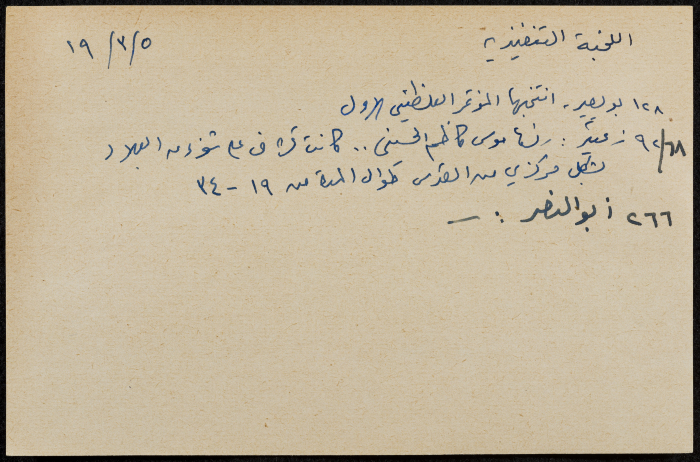 اللجنة التنفيذية
١٩/٣/٥
١٢٨ بويصير - انتخبها المؤتمر الفلسطيني الاول
٩٢/٦٨ زعيتر : رأسها موسى كاظم الحسيني .. كانت تشرف على شؤون البلاد
بشكل مركزي من القدس طوال المدة من ١٩ - ٣٤
٢٦٦ ابو النصر : —